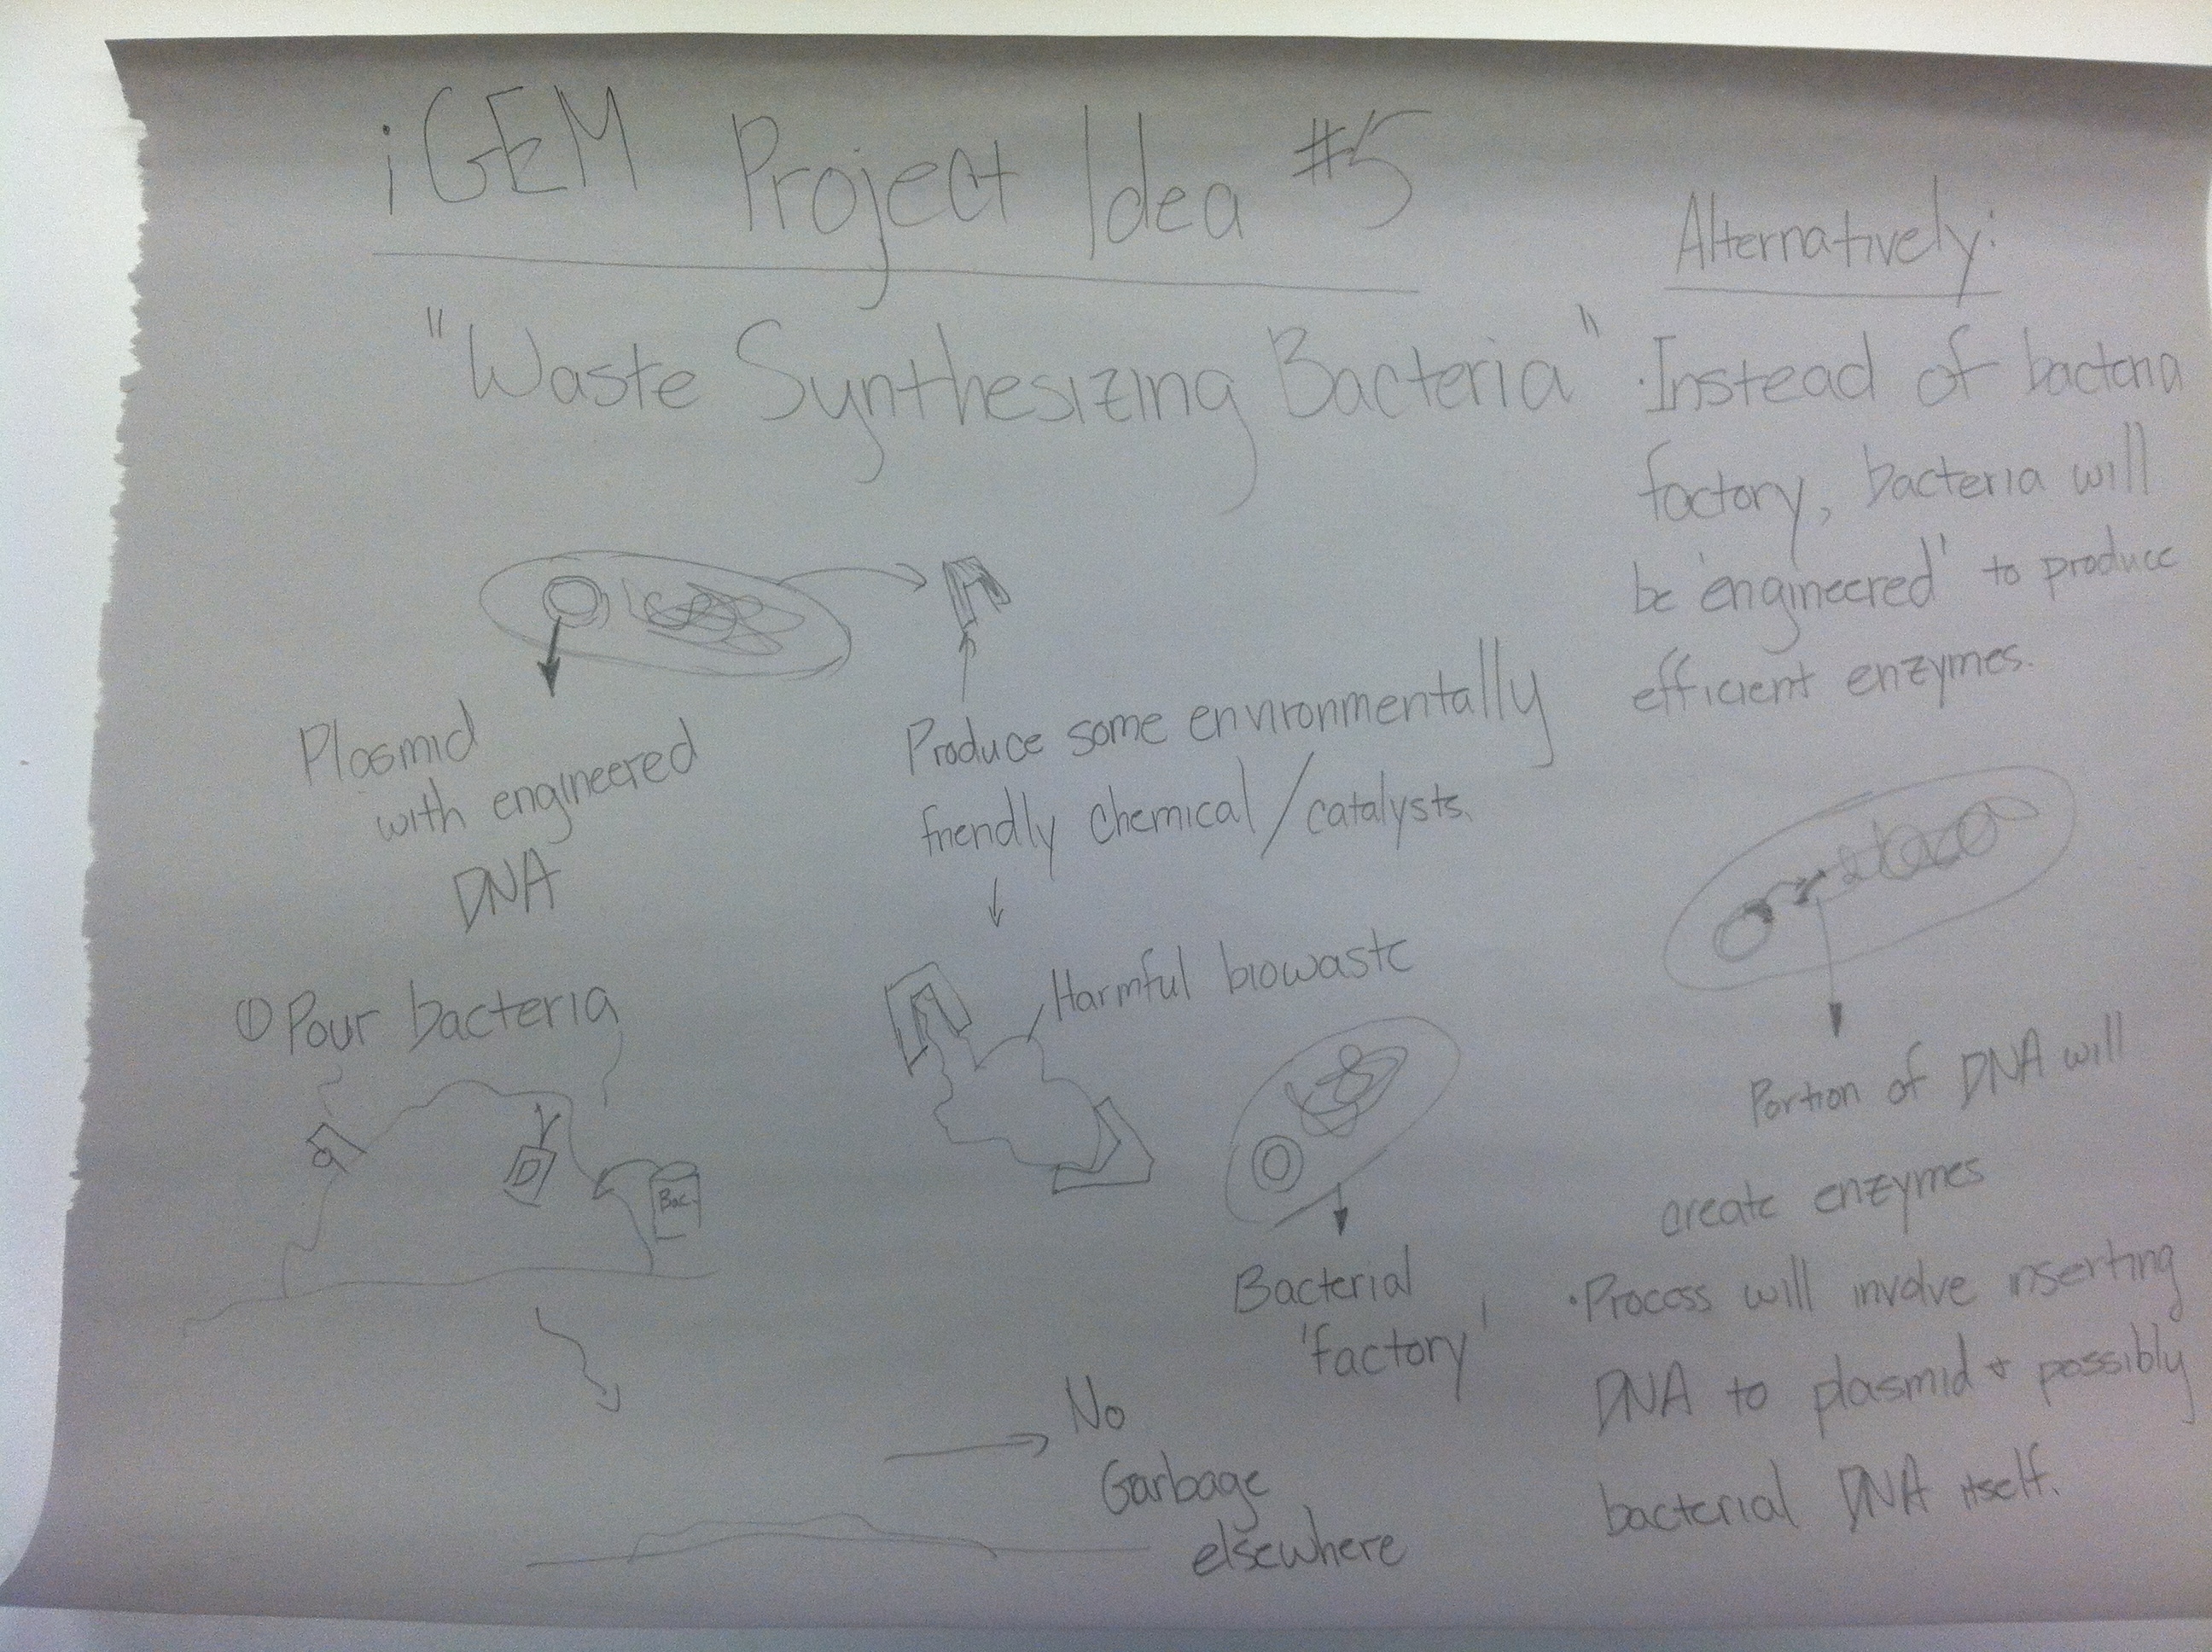 iGEM Project Idea #5
"Waste Synthesizing Bacteria"
Plasmid
with engineered
DNA
Produce some environmentally
friendly chemical/catalysts.
Harmful biowaste
① Pour bacteria
Bac.
Bacterial
'factory'
No
Garbage
elsewhere
Alternatively:
·Instead of bacteria
factory, bacteria will
be 'engineered' to produce
efficient enzymes.
Portion of DNA will
create enzymes
·Process will involve inserting
DNA to plasmid & possibly
bacterial DNA itself.